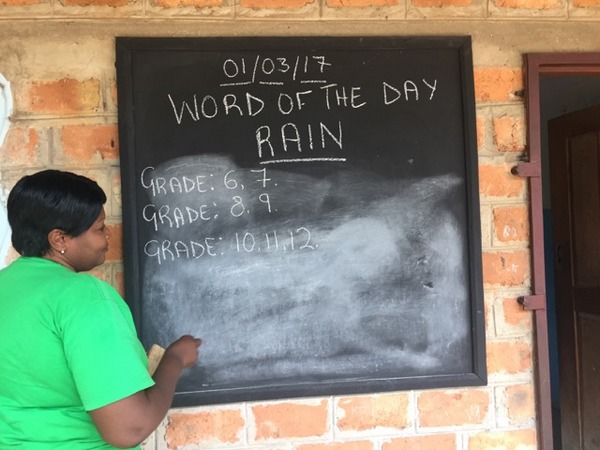 01/03/17
WORD OF THE DAY
RAIN
GRADE: 6, 7.
GRADE: 8. 9.
GRADE: 10, 11, 12.